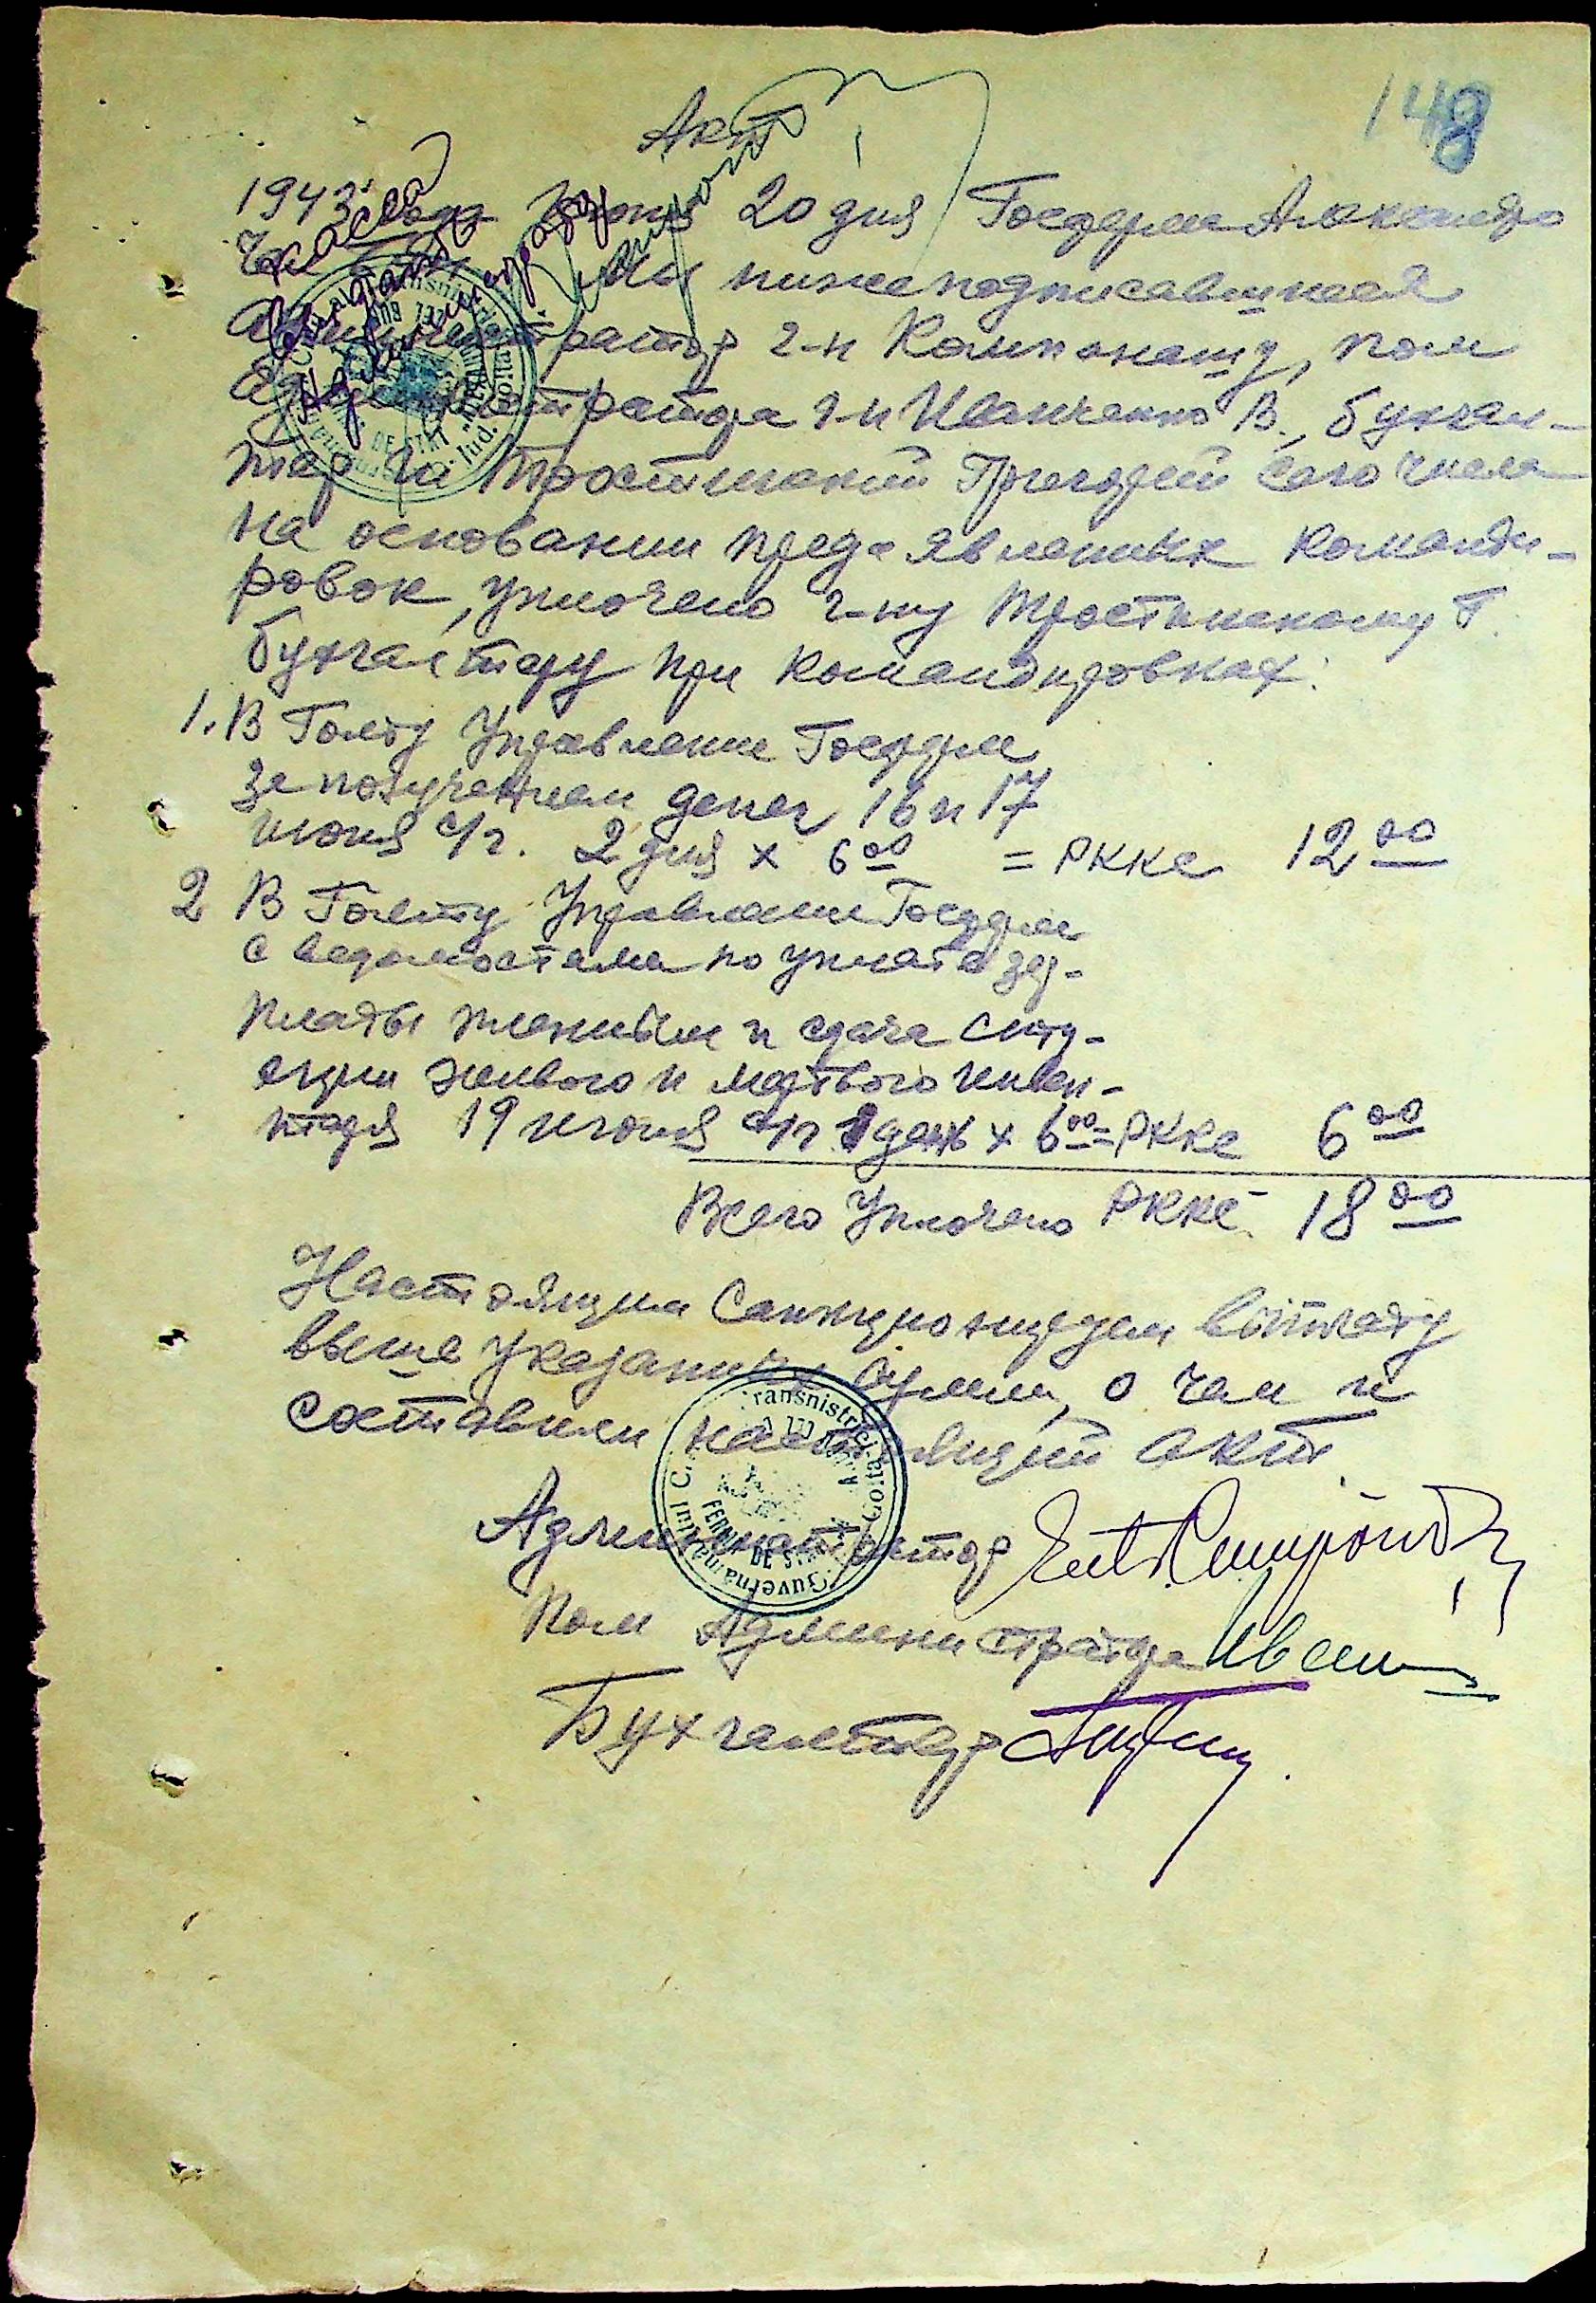 148
Акт
1943 года Июня 20 дня Госферма Александро
Мы нижеподписавшиеся
администратор г-н Кампонашу, пом
администратора г-н Иванченко В., бухгал-
тер Тростинский Григорий сего числа
на основании пред'явленных команди-
ровок, уплочено г-ну Тростинскому Г.
бухгалтеру при командировках:
1. В Голту Управление Госферм
за получением денег 16 и 17
июня с/г. 2 дня х 6 00 = РККС 12 00
2 В Голту Управление Госферм
с ведомостями по уплате зар-
платы пленным и сдача ситу-
ации живого и мертвого инвен-
таря 19 июня с/г 1 день х 6 00 = РККС 6 00
Всего Уплочено РККС 18 00
Настоящим Санкционируем выплату
выше указанных сумм, о чем и
составили настоящий акт
Администратор
Пом Администратора Иван
Бухгалтер